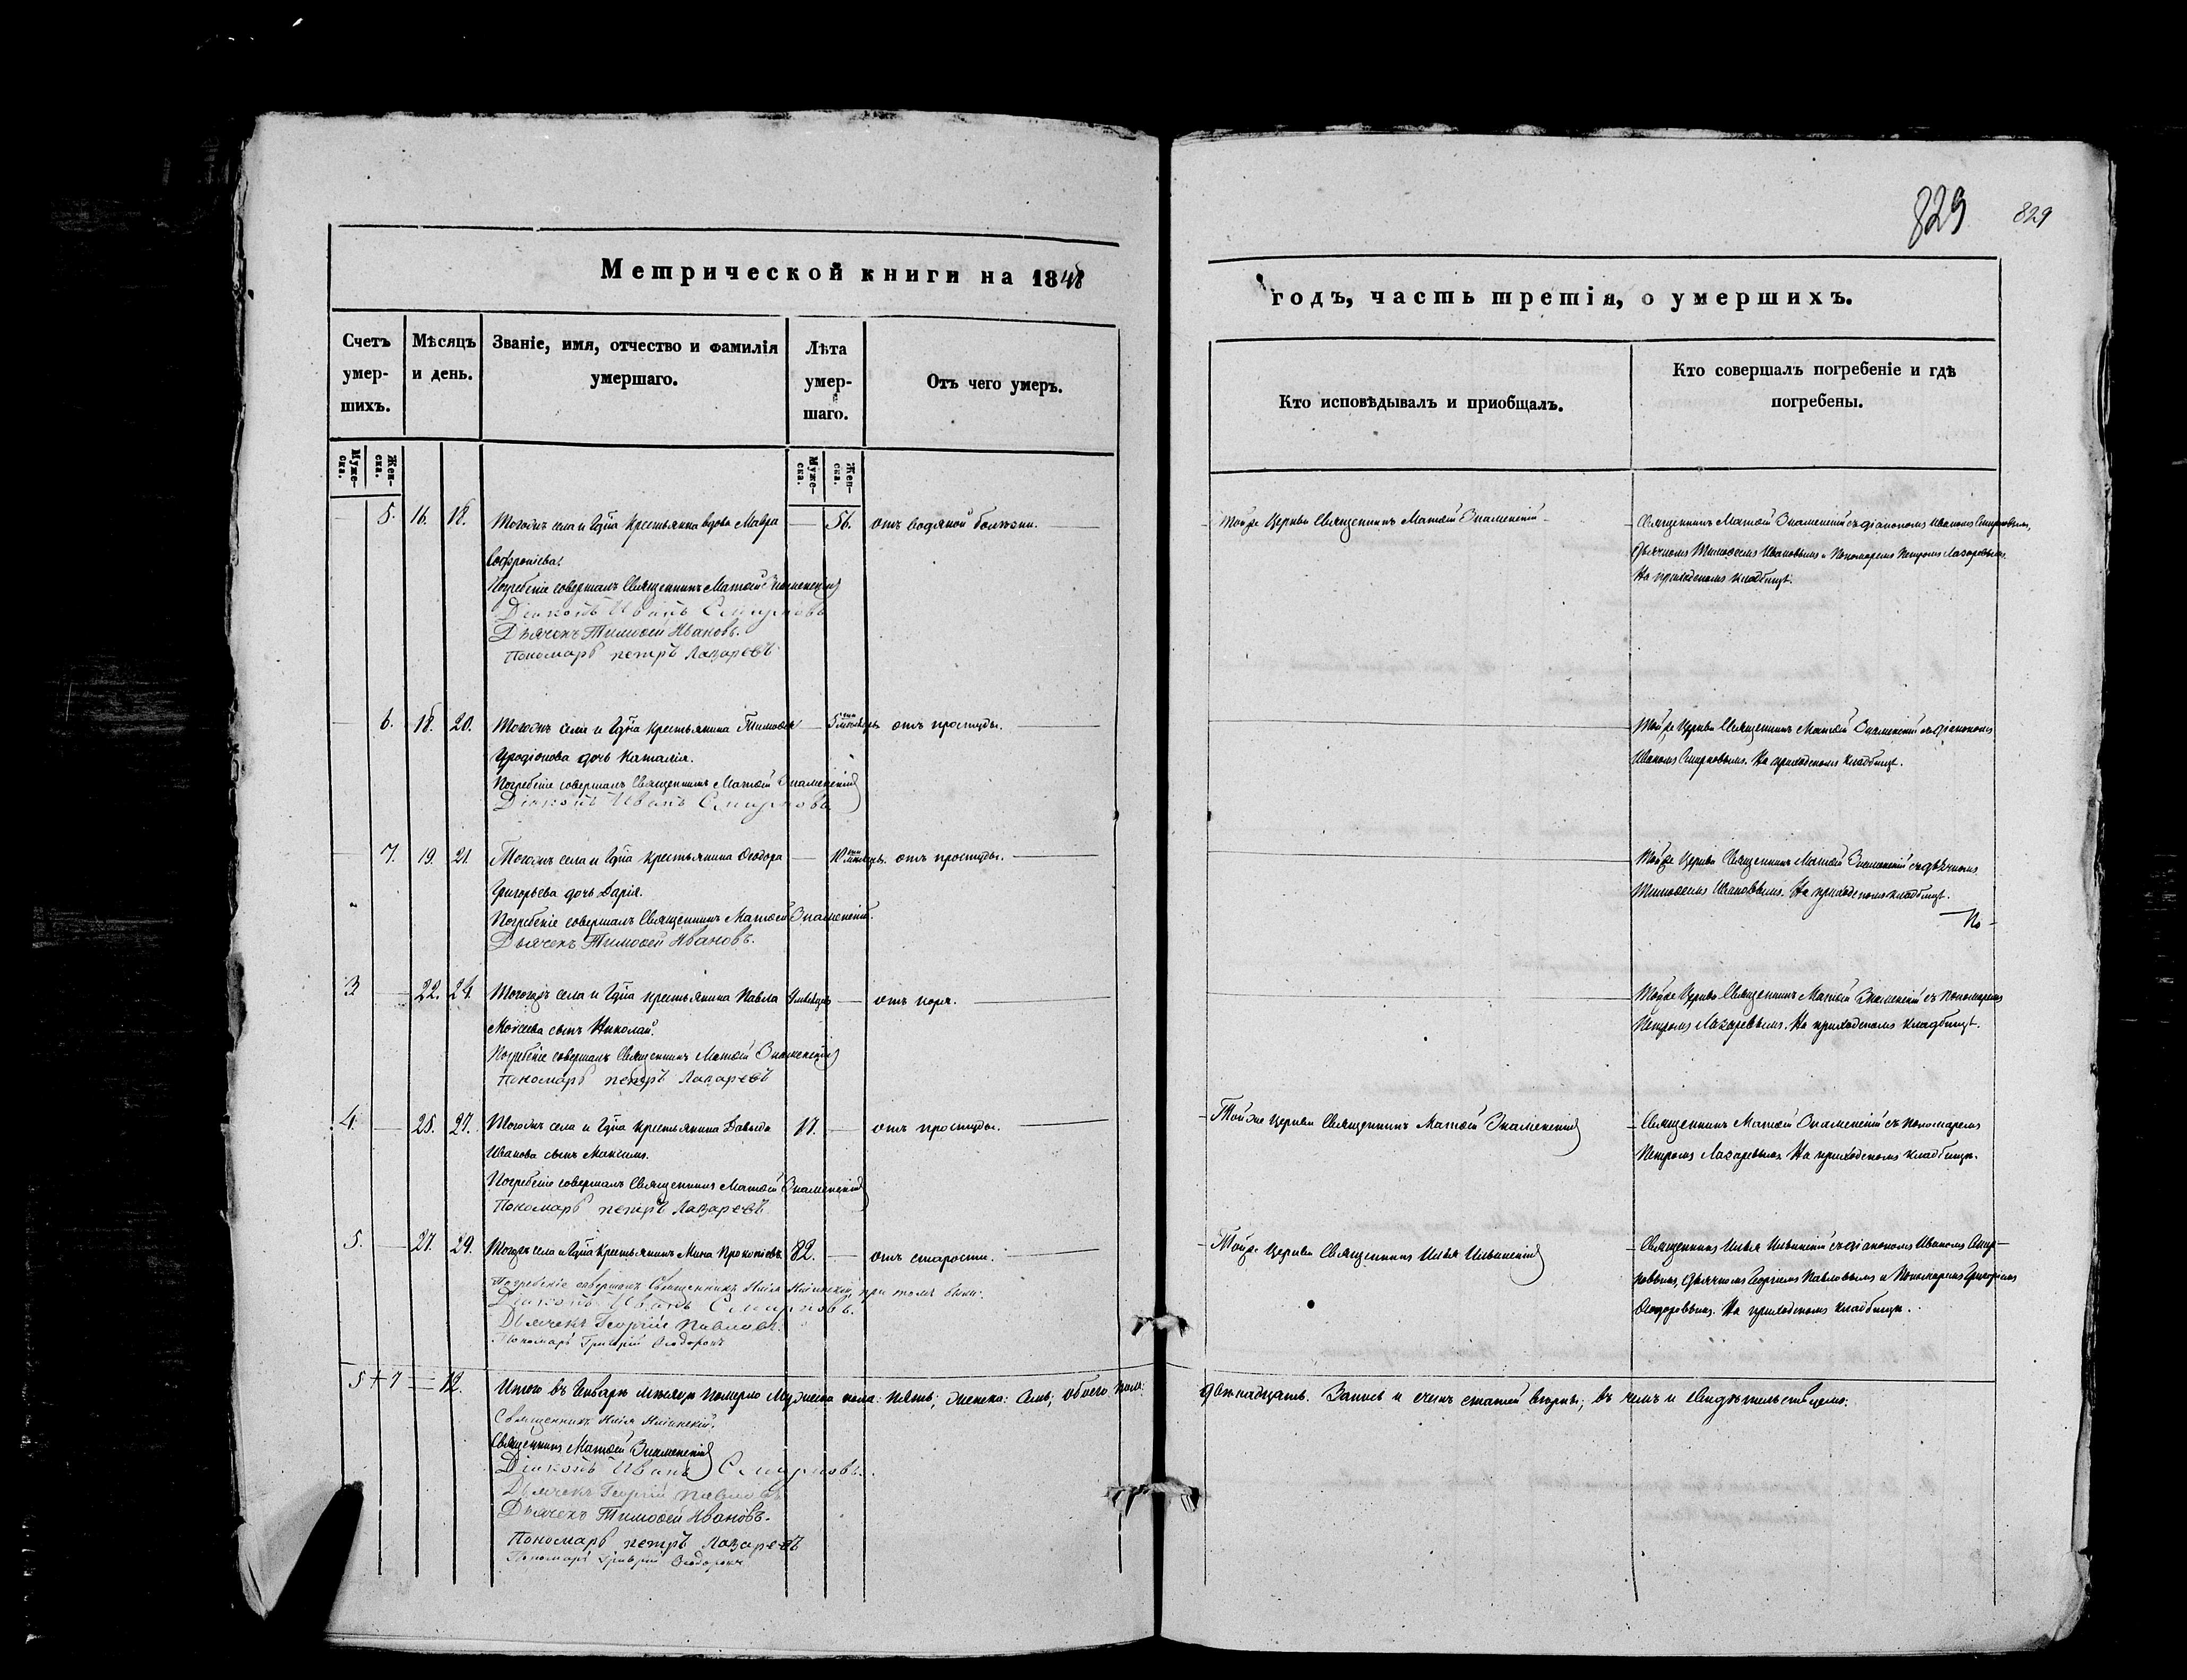 829
829
Метрической книги на 1848
годъ, часть третія, о умершихъ.
Счетъ умер-шихъ.
Мѣсяцъ и день.
Званіе, имя, отчество и фамилія умершаго.
Лѣта умер-шаго.
Отъ чего умеръ.
Кто исповѣдывалъ и приобщалъ.
Кто совершалъ погребеніе и гдѣ погребены.
Муже-ска.
Жен-ска.
Муже-ска.
Жен-ска.
5. 16. 18. Тогожъ села и Гдна крестьянка вдова Мавра 56. отъ водяной болѣзни. Тойже Церкви Священникъ Матѳей Знаменскій Священникъ Матѳей Знаменскій съ діакономъ Иваномъ Смирновымъ,
Софроніева. дьячкомъ Тимоѳеемъ Ивановымъ и Пономаремъ Петромъ Лазаревымъ.
Погребеніе совершалъ Священникъ Матѳей Знаменскій На приходскомъ кладбищѣ.
Діаконъ Иванъ Смирновъ
Дьячекъ Тимоѳей Ивановъ.
Пономарь петръ Лазаревъ
6. 18. 20. Тогожъ села и Гдна крестьянина Тимоѳея 5 мѣсяцъ отъ простуды. Тойже Церкви Священникъ Матѳей Знаменскій съ діакономъ
Иродіонова дочь Наталія. Иваномъ Смирновымъ. На приходскомъ кладбищѣ.
Погребеніе совершалъ Священникъ Матѳей Знаменскій
Діаконъ Иванъ Смирновъ
7. 19. 21. Тогожъ села и Гдна крестьянина Ѳеодора 10 мѣсяцъ. отъ простуды. Тойже Церкви Священникъ Матѳей Знаменскій съ дьячкомъ
Григорьева дочь Дарія. Тимоѳеемъ Ивановымъ. На приходскомъ кладбищѣ.
Погребеніе совершалъ Священникъ Матѳей Знаменскій.
По-
Дьячекъ Тимоѳей Ивановъ.
3 22. 24. Тогожъ села и Гдна крестьянина Павла мѣсяцъ отъ коря. Тойже Церкви Священникъ Матѳей Знаменскій съ пономаремъ
Моѵсеева сынъ Николай. Петромъ Лазаревымъ. На приходскомъ кладбищѣ.
Погребеніе совершалъ Священникъ Матѳей Знаменскій
Пономарь петръ Лазаревъ
4. 25. 27. Тогожъ села и Гдна крестьянина Давыда 17. отъ простуды. Тойже Церкви Священникъ Матѳей Знаменскій Священникъ Матѳей Знаменскій съ пономаремъ
Иванова сынъ Максимъ. Петромъ Лазаревымъ. На приходскомъ кладбищѣ.
Погребеніе совершалъ Священникъ Матѳей Знаменскій
Пономарь петръ Лазаревъ
5. 27. 29. Тогожъ села и Гдна крестьянинъ Мина Прокопіевъ 82. отъ старости. Тойже Церкви Священникъ Илья Ильинскій Священникъ Илья Ильинскій съ діакономъ Иваномъ Смир-
новымъ, дьячкомъ Георгіемъ Павловымъ и Пономаремъ Григоріемъ
Погребеніе совершалъ Священникъ Илія Ильинскій, при томъ были:
Ѳеодоровымъ. На приходскомъ кладбищѣ.
Діаконъ Иванъ Смирновъ.
Дьячекъ Георгій Павловъ.
Пономарь Григорій Ѳеодоровъ
5 + 7 = 12. Итого въ Генварѣ мѣсяцѣ померло Мужеска пола: пять; женска: семь; обоего пола: двѣнадцать. Запись и счетъ статей вѣрны; въ чемъ и свидѣтельствуемъ:
Священникъ Илія Ильинскій.
Священникъ Матѳей Знаменскій
Діаконъ Иванъ Смирновъ.
Дьячекъ Георгій Павловъ
Дьячекъ Тимоѳей Ивановъ.
Пономарь петръ Лазаревъ
Пономарь Григорій Ѳеодоровъ